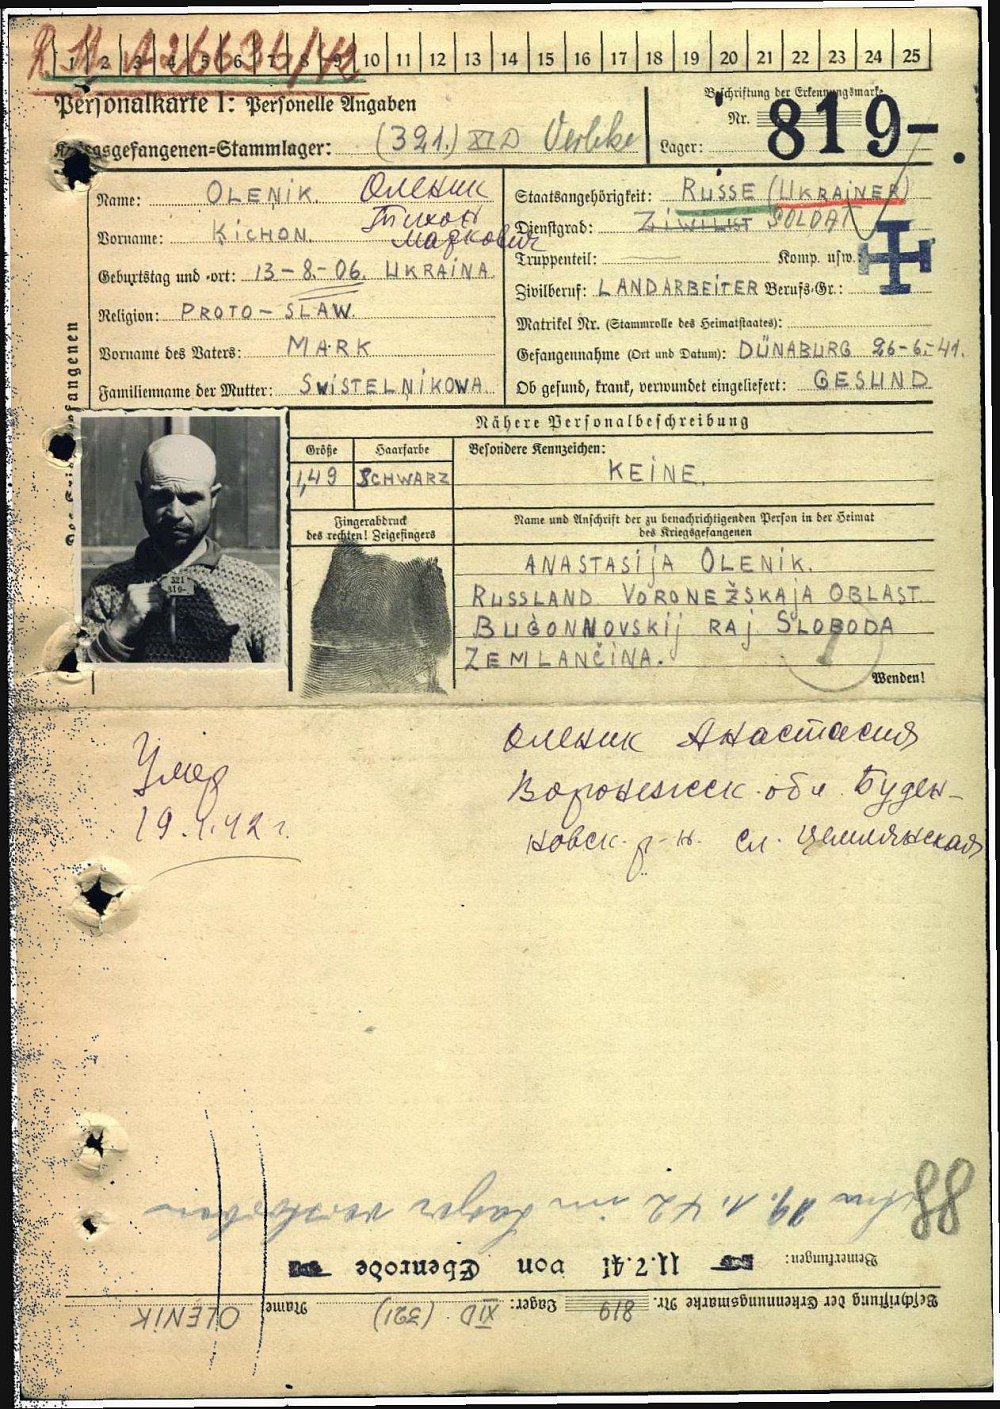 R.M. A26636/42
1 2 3 4 5 6 7 8 9 10 11 12 13 14 15 16 17 18 19 20 21 22 23 24 25
Personalkarte I: Personelle Angaben
Beschriftung der Erkennungsmarke
Nr. 819-
Kriegsgefangenen-Stammlager: (321.) XI D
Lager:
Name: OLENIK. Оленик
Vorname: KICHON. Тихон Маркович
Geburtstag und -ort: 13-8.-06. UKRAINA
Religion: PROTO-SLAW.
Vorname des Vaters: MARK
Familienname der Mutter: SWISTELNIKOWA.
Staatsangehörigkeit: RUSSE (UKRAINER)
Dienstgrad: ZIWILIST SOLDAT
Truppenteil: Komp. usw.:
Zivilberuf: LANDARBEITER Berufs-Gr.:
Matrikel Nr. (Stammrolle des Heimatstaates):
Gefangennahme (Ort und Datum): DÜNABURG 26-6.-41.
Ob gesund, krank, verwundet eingeliefert: GESUND
Nähere Personalbeschreibung
Größe
Haarfarbe
Besondere Kennzeichen:
1,49
SCHWARZ
KEINE.
Fingerabdruck
des rechten! Zeigefingers
Name und Anschrift der zu benachrichtigenden Person in der Heimat
des Kriegsgefangenen
321
819-
ANASTASIJA OLENIK.
RUSSLAND VORONEŽSKAJA OBLAST
BUGONNOVSKIJ RAJ SLOBODA
ZEMLANČINA.
Wenden!
Умер
19.1.42 г.
Оленик Анастасия
Воронежск. обл. Буден-
новск. р-н. сл. Цемлянская
88
19.1.42 im Lager verstorben
Bemerkungen: 11.7.41 von Ebenrode
Beschriftung der Erkennungsmarke Nr. 819 Lager: XI D (321) Name OLENIK